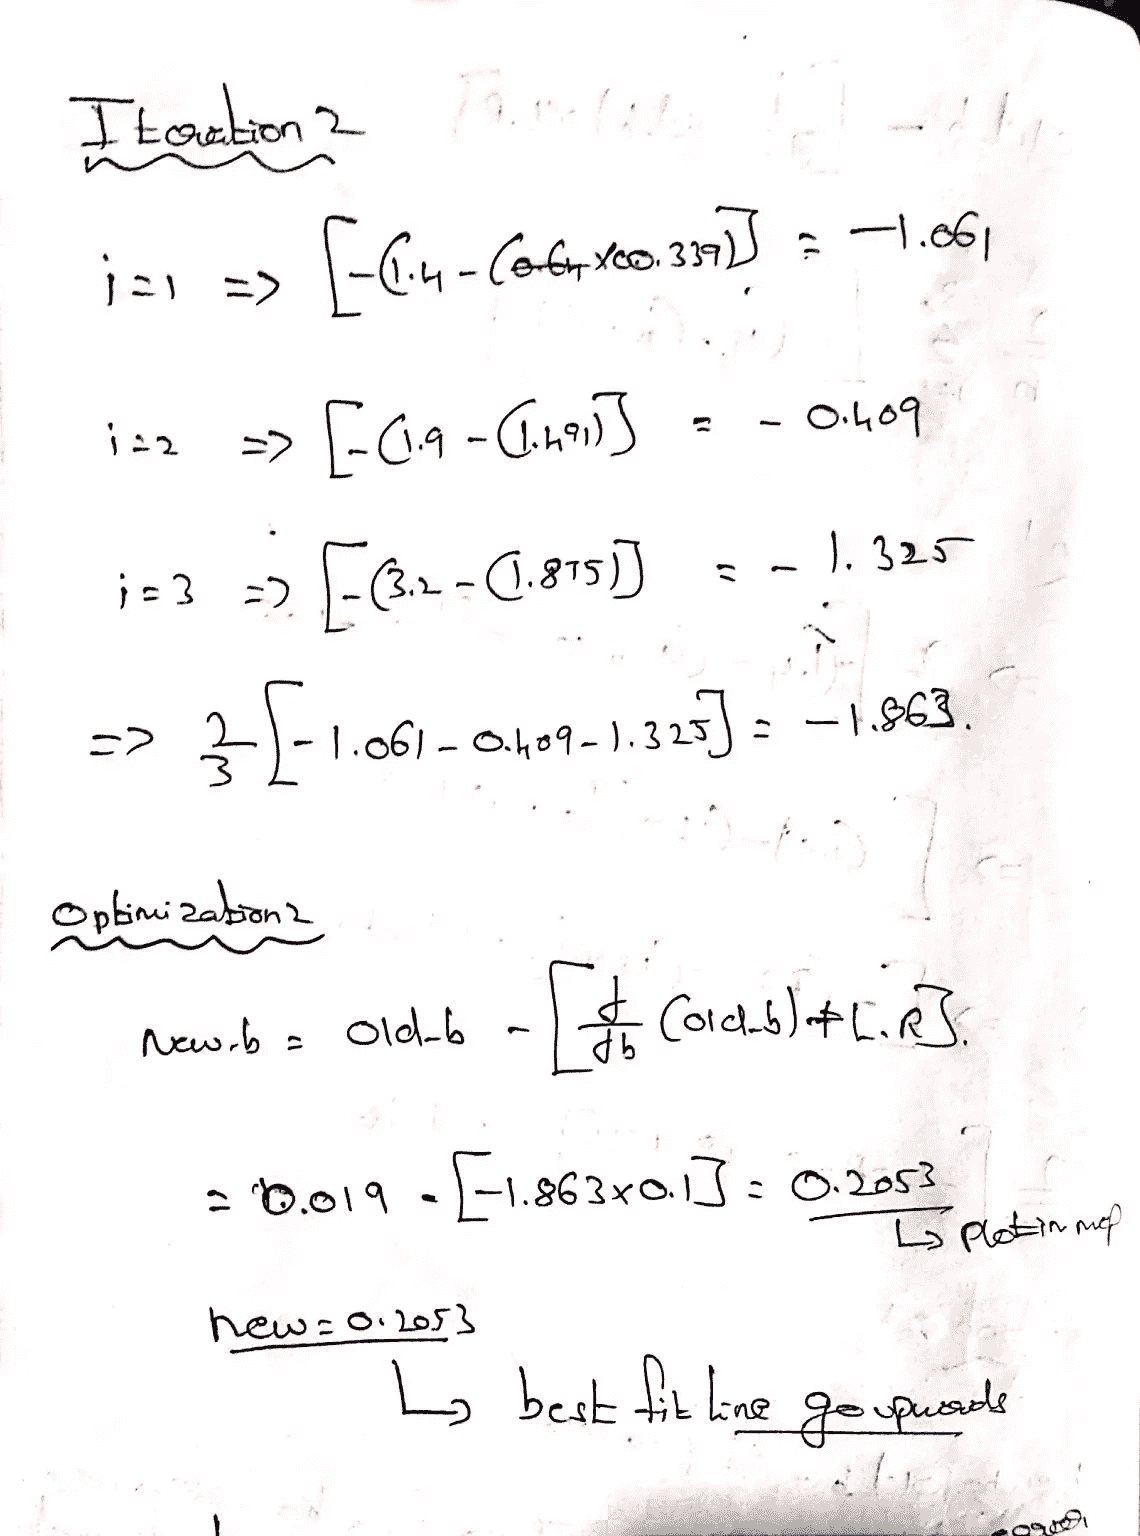 Iteration 2
i=1 => [-(1.4-(0.339)] = -1.061
i=2 => [-(1.9-(1.491)] = -0.409
i=3 => [-(3.2-(1.875)] = -1.325
=> 2/3 [-1.061-0.409-1.325] = -1.863.
Optimization 2
New_b = old_b - [d/db (old_b) * L.R].
= 0.019 - [-1.863×0.1] = 0.2053
↳ plot in
new = 0.2053
↳ best fit line go upwards